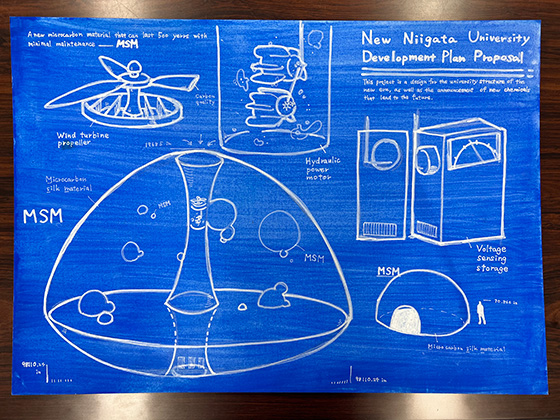 A new microcarbon material that can last 500 years with
minimal maintenance — MSM
New Niigata University
Development Plan Proposal
This project is a design for the university structure of the
new era, as well as the announcement of new chemicals
that lead to the future.
Carbon
quality
Wind turbine
propeller
Hydraulic
power
motor
Microcarbon
silk material
MSM
MSM
MSM
Voltage
sensing
storage
MSM
Microcarbon silk material
in